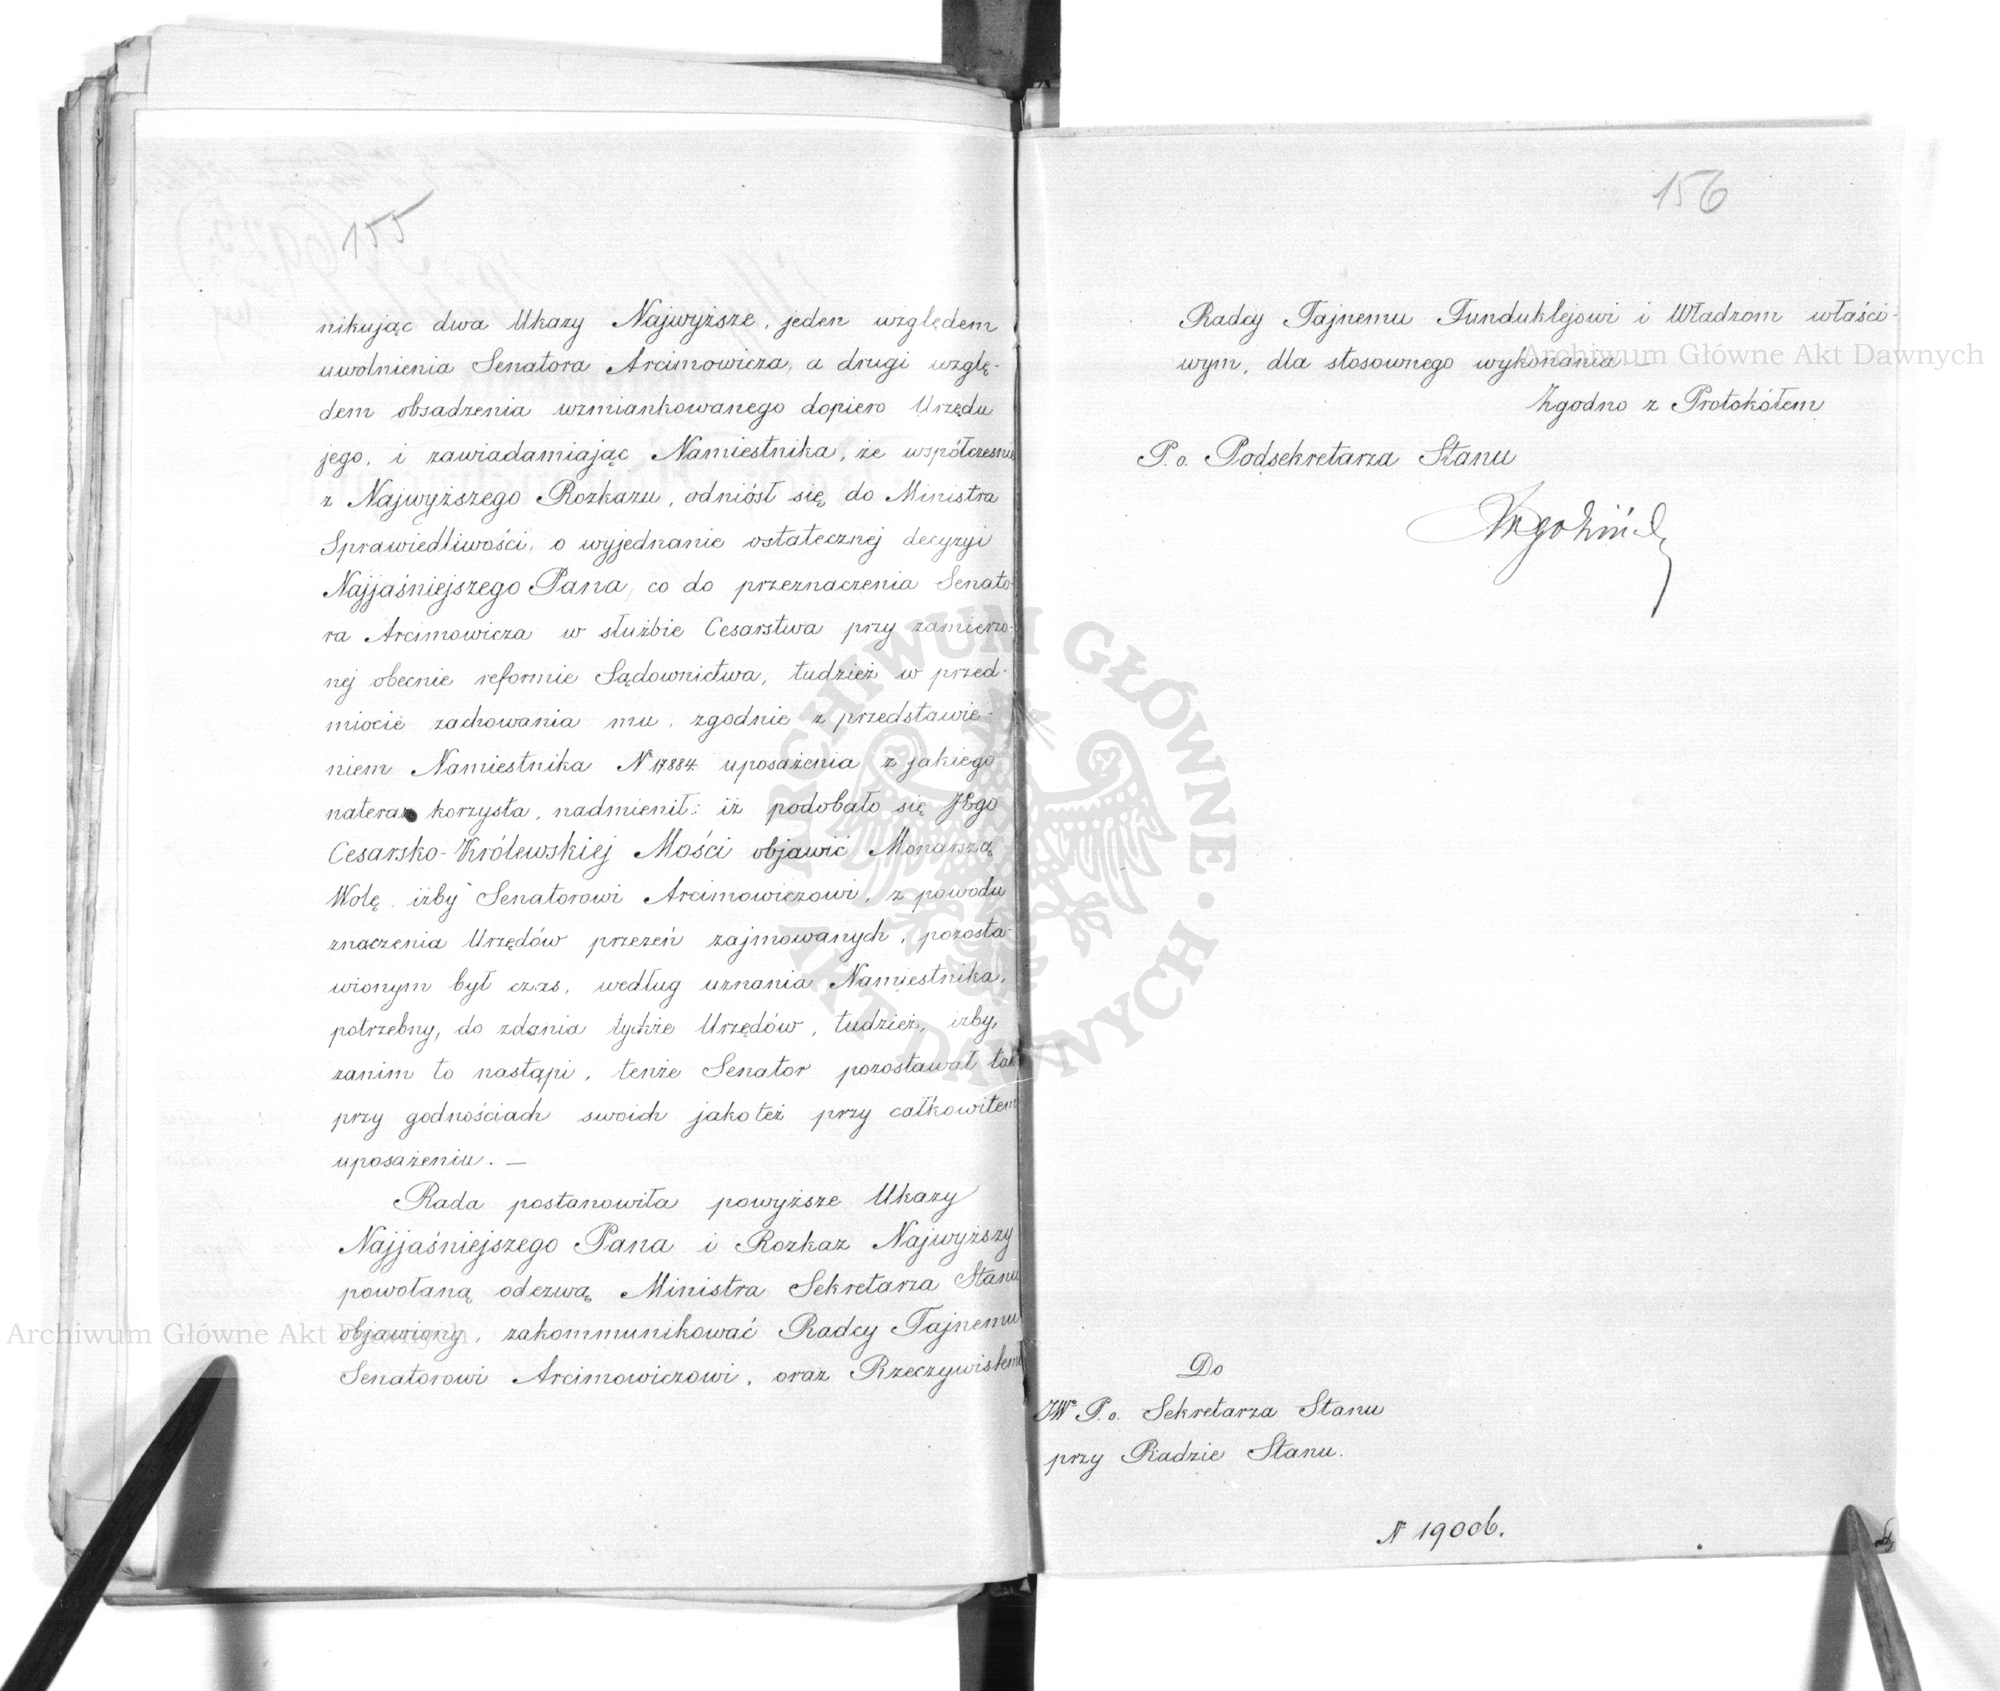 155
nikując dwa Ukazy Najwyższe, jeden względem
uwolnienia Senatora Arcimowicza, a drugi wzglę-
dem obsadzenia wzmiankowanego dopiero Urzędu
jego, i zawiadamiając Namiestnika, że współcześnie
z Najwyższego Rozkazu, odniósł się do Ministra
Sprawiedliwości, o wyjednanie ostatecznej decyzyi
Najjaśniejszego Pana, co do przeznaczenia Senato-
ra Arcimowicza w służbie Cesarstwa przy zamierzo-
nej obecnie reformie Sądownictwa, tudzież w przed-
miocie zachowania mu, zgodnie z przedstawie-
niem Namiestnika No 17884 uposażenia z jakiego
nateraz korzysta, nadmienił: iż podobało się Jego
Cesarsko-Królewskiej Mości objawić Monarszą
Wolę, iżby Senatorowi Arcimowiczowi, z powodu
znaczenia Urzędów przezeń zajmowanych, pozosta-
wionym był czas, według uznania Namiestnika,
potrzebny, do zdania tychże Urzędów, tudzież, iżby,
zanim to nastąpi, tenże Senator pozostawał tak
przy godnościach swoich jako też przy całkowitem
uposażeniu. —
Rada postanowiła powyższe Ukazy
Najjaśniejszego Pana i Rozkaz Najwyższy
powołaną odezwą Ministra Sekretarza Stanu
objawiony, zakommunikować Radcy Tajnemu
Senatorowi Arcimowiczowi, oraz Rzeczywistemu
156
Radcy Tajnemu Funduklejowi i Władzom właści-
wym, dla stosownego wykonania. —
Zgodno z Protokółem
P. o. Podsekretarza Stanu
Do
JWo P. o. Sekretarza Stanu
przy Radzie Stanu.
No 19006.
Archiwum Główne Akt Dawnych
Archiwum Główne Akt Dawnych
ARCHIWUM GŁÓWNE · AKT DAWNYCH ·